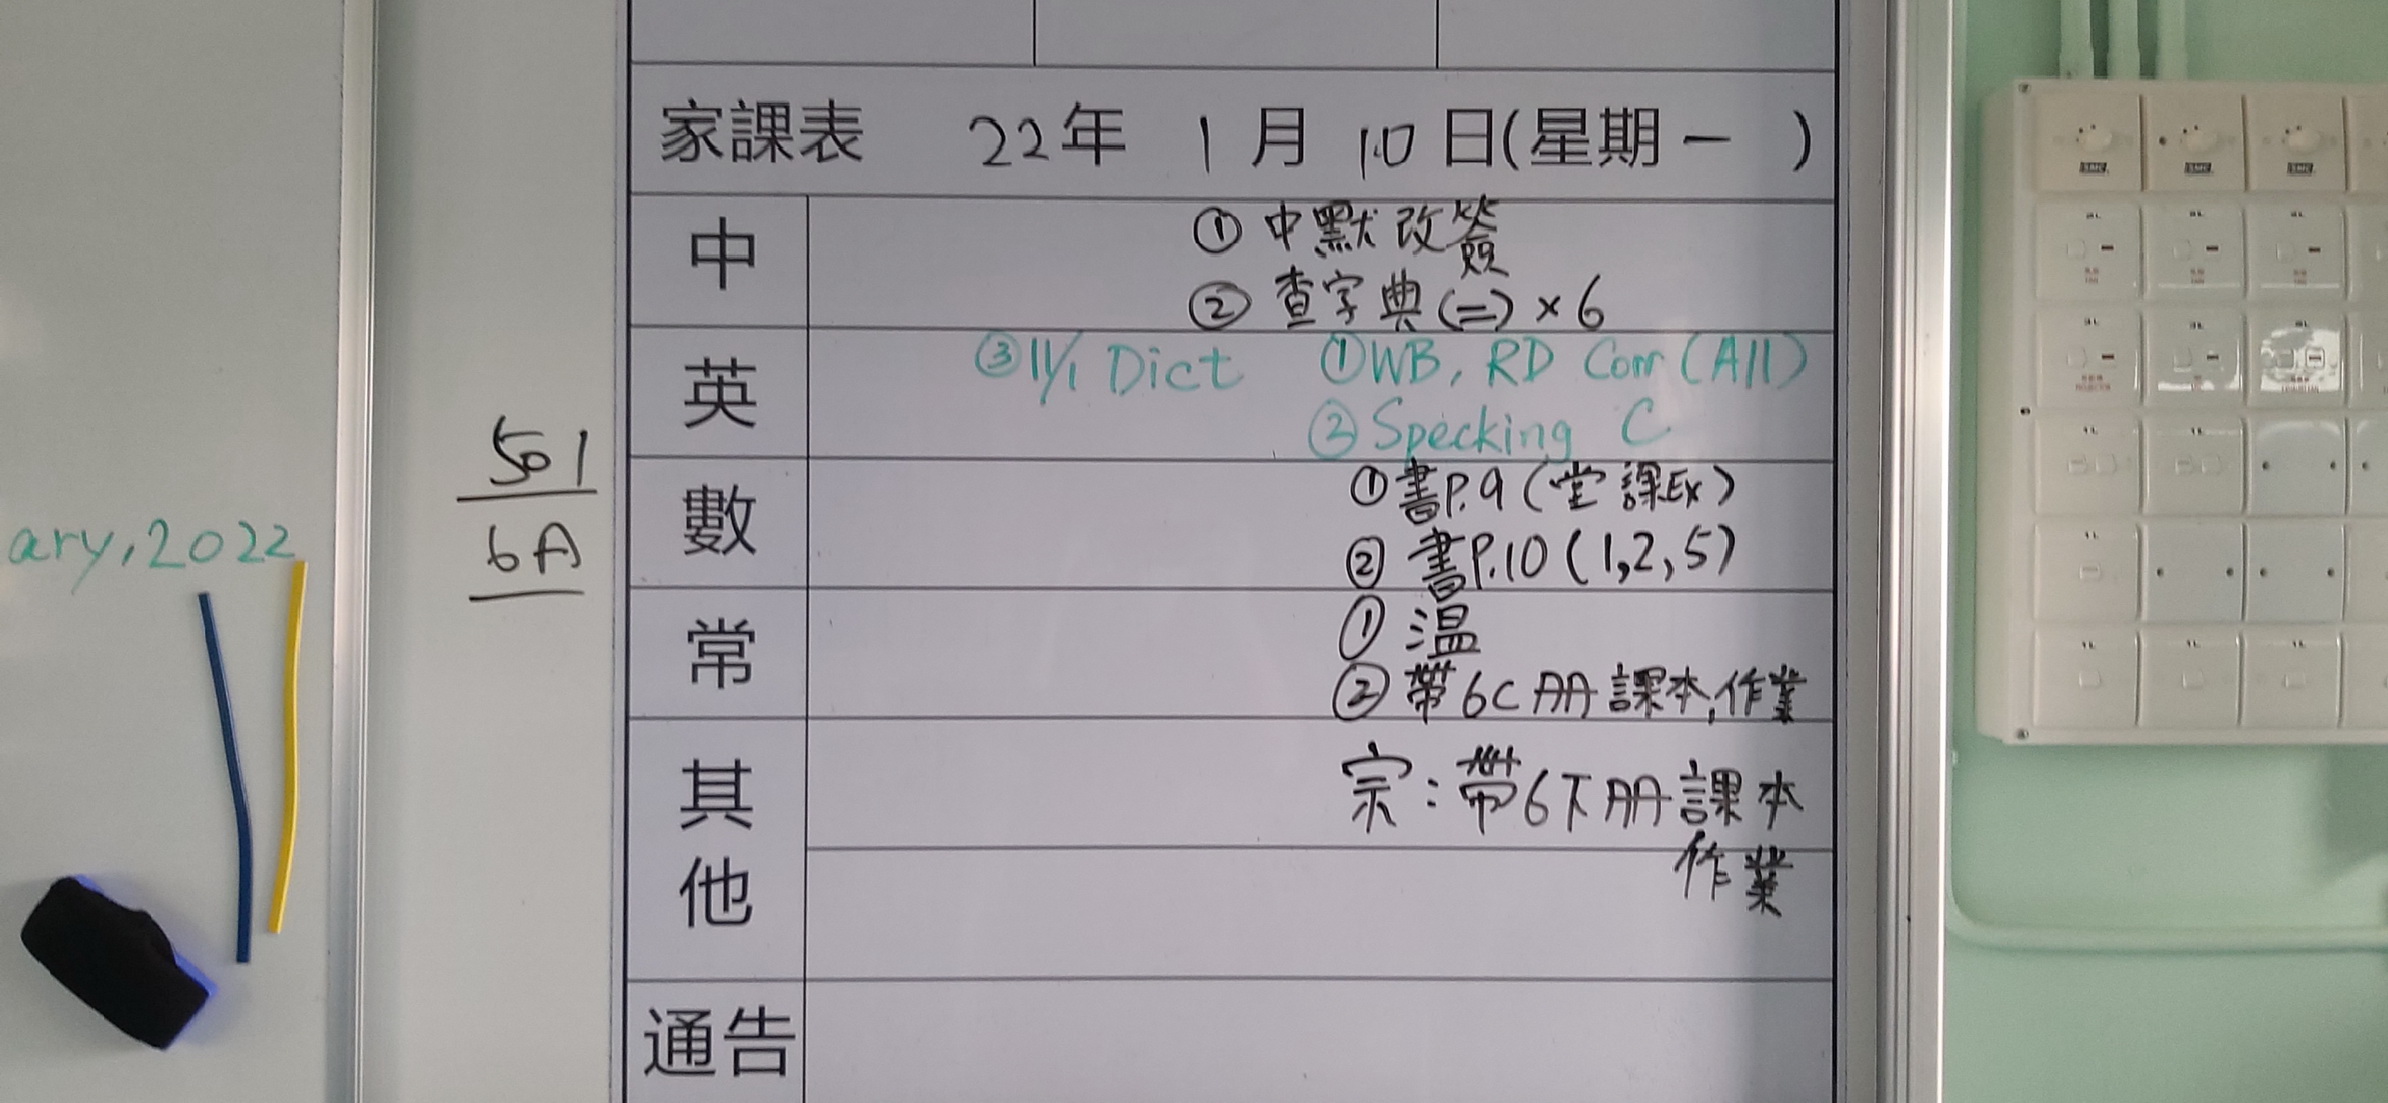 家課表 22年 1月 10日(星期一 )
中
① 中默改簽
② 查字典(二)×6
英
③11/1 Dict ①WB, RD Corr (All)
② Specking C
數
①書P.9 (堂課Ex)
② 書P.10 (1,2,5)
常
① 溫
② 帶6C冊課本,作業
其他
宗:帶6下冊課本
作業
通告
501
6A
ary,2022